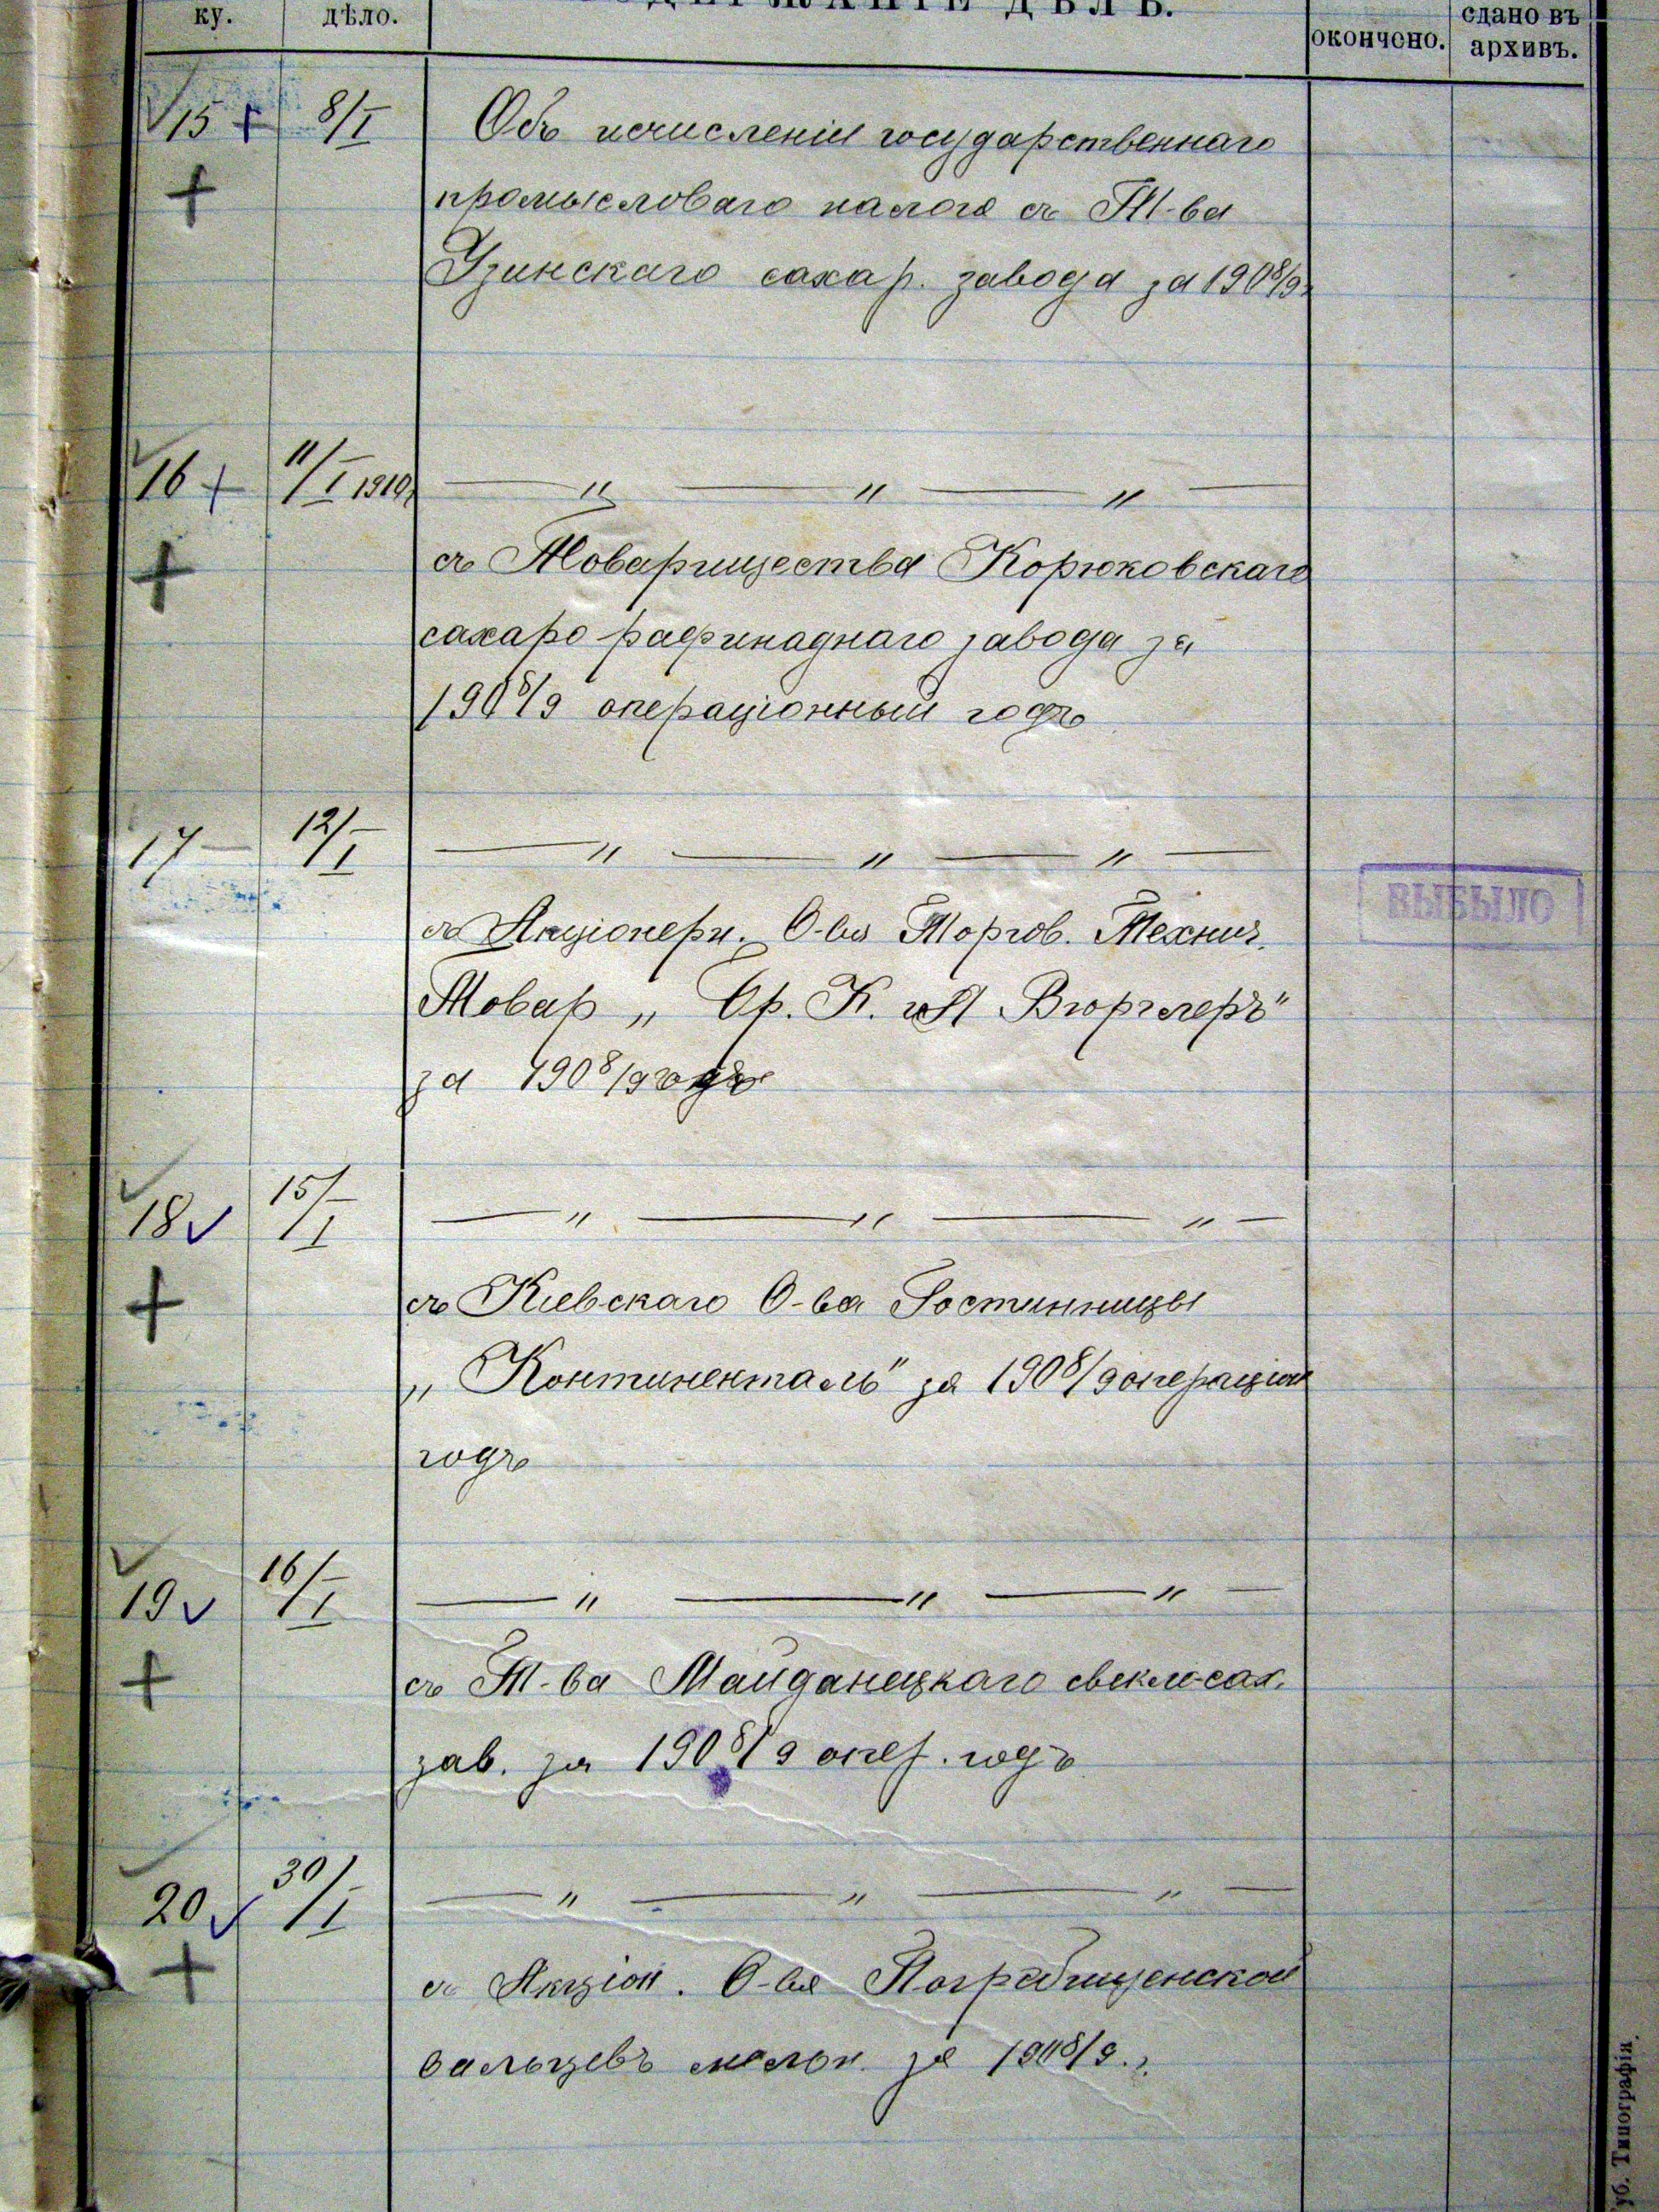 ку.
дѣло.
СОДЕРЖАНІЕ ДѢЛЪ.
окончено.
сдано въ
архивъ.
15 + 8/I Объ исчисленіи государственнаго
+ промысловаго налога съ Т-ва
Узинскаго сахар. завода за 1908/9
16 + 11/I 1910 — " — " — " —
+ съ Товарищества Корюковскаго
сахаро рафинаднаго завода за
1908/9 операціонный годъ
17 — 12/I — " — " — " —
съ Акціонерн. О-ва Торгов. Технич.
ВЫБЫЛО
Товар „ Бр. К. и Я Вюрглеръ"
за 1908/9 годъ
18 v 15/I — " — " — " —
+ съ Кіевскаго О-ва Гостинницы
„ Континенталь" за 1908/9 операціон
годъ
19 v 16/I — " — " — " —
+ съ Т-ва Майданецкаго свекло-сах.
зав. за 1908/9 опер. годъ
20 v 30/I — " — " — " —
+ съ Акціон. О-ва Погребищенской
вальцевъ мельн. за 1908/9 г.
уб. Типографія.